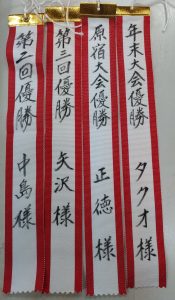 年末大会優勝 タクオ様
原宿大会優勝 正徳様
第三回優勝 矢沢様
第二回優勝 中島様